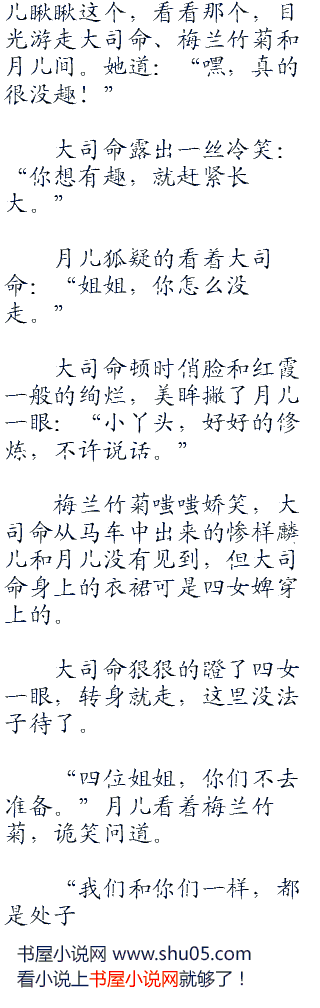 儿瞅瞅这个，看看那个，目
光游走大司命、梅兰竹菊和
月儿间。她道：“嘿，真的
很没趣！”
大司命露出一丝冷笑：
“你想有趣，就赶紧长
大。”
月儿狐疑的看着大司
命：“姐姐，你怎么没
走。”
大司命顿时俏脸和红霞
一般的绚烂，美眸撇了月儿
一眼：“小丫头，好好的修
炼，不许说话。”
梅兰竹菊嗤嗤娇笑，大
司命从马车中出来的惨样麟
儿和月儿没有见到，但大司
命身上的衣裙可是四女婢穿
上的。
大司命狠狠的蹬了四女
一眼，转身就走，这里没法
子待了。
“四位姐姐，你们不去
准备。”月儿看着梅兰竹
菊，诡笑问道。
“我们和你们一样，都
是处子
书屋小说网 www.shu05.com
看小说上书屋小说网就够了！